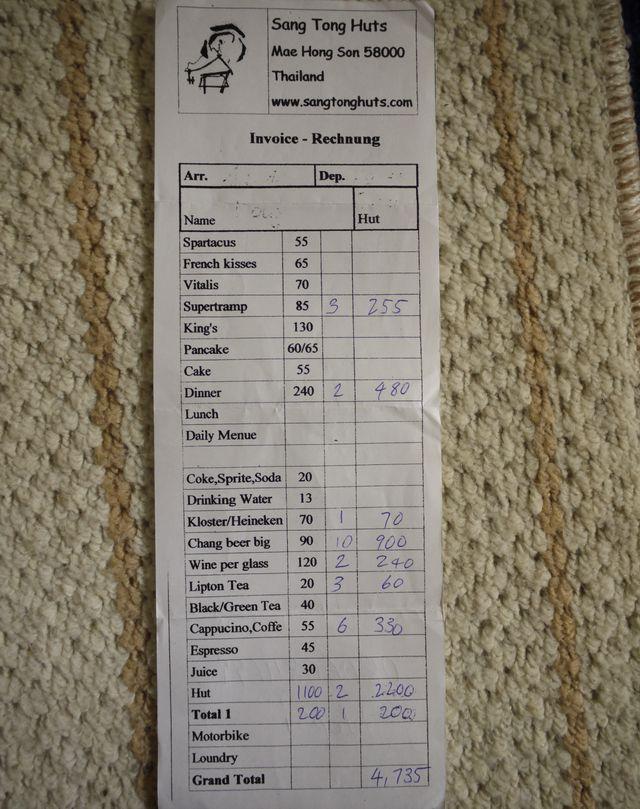 Sang Tong Huts
Mae Hong Son 58000
Thailand
www.sangtonghuts.com
Invoice - Rechnung
Arr. Dep.
Name Hut
Spartacus 55
French kisses 65
Vitalis 70
Supertramp 85 3 255
King's 130
Pancake 60/65
Cake 55
Dinner 240 2 480
Lunch
Daily Menue
Coke,Sprite,Soda 20
Drinking Water 13
Kloster/Heineken 70 1 70
Chang beer big 90 10 900
Wine per glass 120 2 240
Lipton Tea 20 3 60
Black/Green Tea 40
Cappucino,Coffe 55 6 330
Espresso 45
Juice 30
Hut 1100 2 2200
Total 1 200 1 200
Motorbike
Loundry
Grand Total 4,735